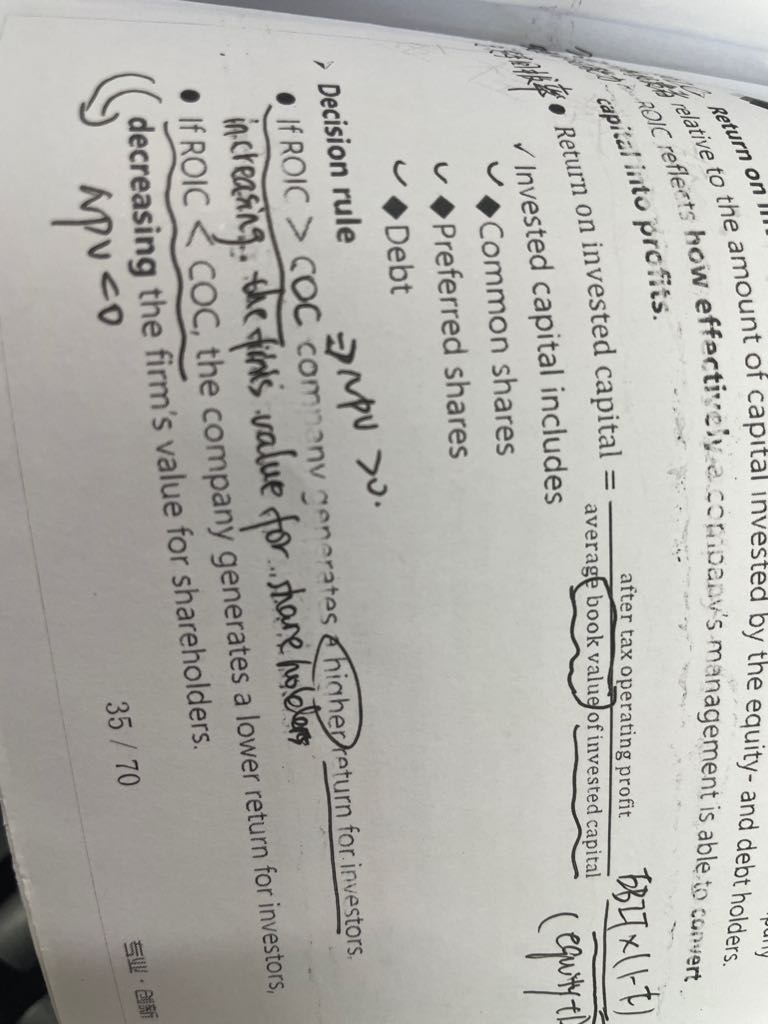 Return on
relative to the amount of capital invested by the equity- and debt holders.
ROIC reflects how effectively a company's management is able to convert
capital into profits.
EBIT×(1-t)
● Return on invested capital = after tax operating profit
average book value of invested capital
(equity+
✓ Invested capital includes
✓ ◆ Common shares
✓ ◆ Preferred shares
✓ ◆ Debt
⇒ NPV >0.
Decision rule
● If ROIC > COC company generates a higher return for investors,
increasing. the firm's value for share holders
● If ROIC < COC, the company generates a lower return for investors,
decreasing the firm's value for shareholders.
NPV <0
35 / 70
专业·创新